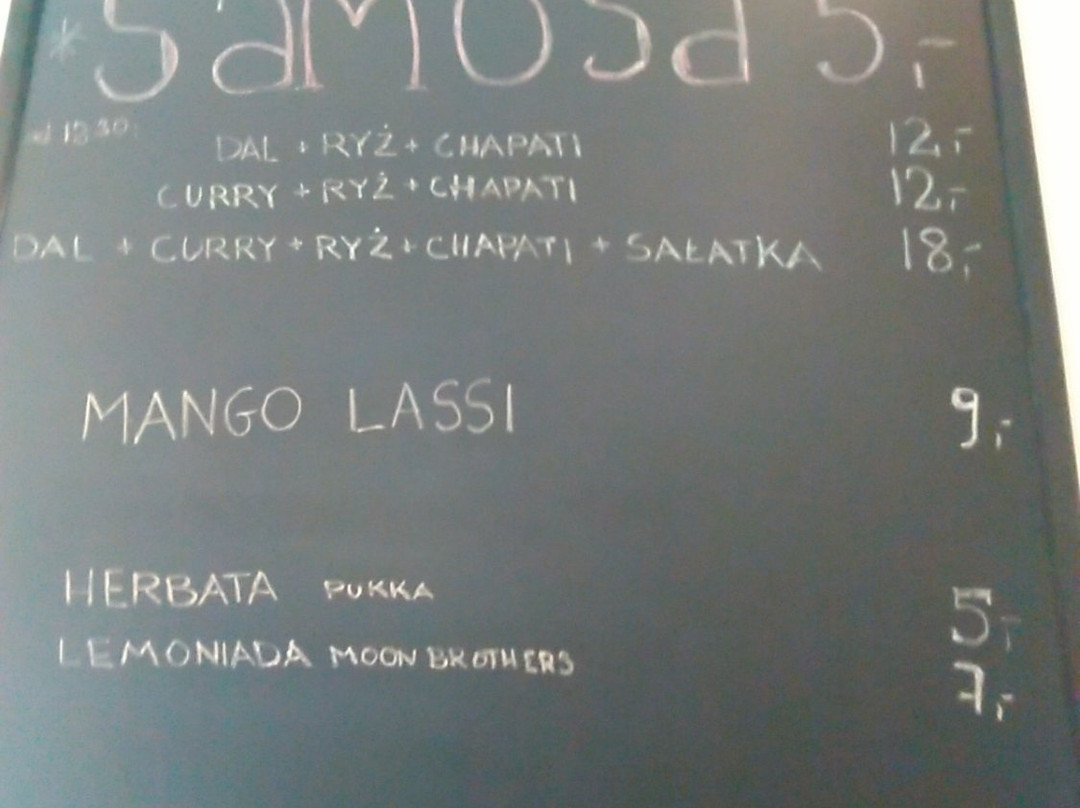 * SAMOSA 5,-
DAL + RYŻ + CHAPATI 12,-
CURRY + RYŻ + CHAPATI 12,-
DAL + CURRY + RYŻ + CHAPATI + SAŁATKA 18,-
MANGO LASSI 9,-
HERBATA PUKKA 5,-
LEMONIADA MOON BROTHERS 7,-